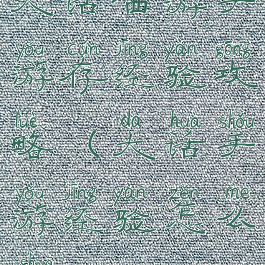 yóu cún jīng yàn gōng
游存经验攻
lüè dà huà shǒu
略（大话手
yóu jīng yàn zěn me
游经验怎么